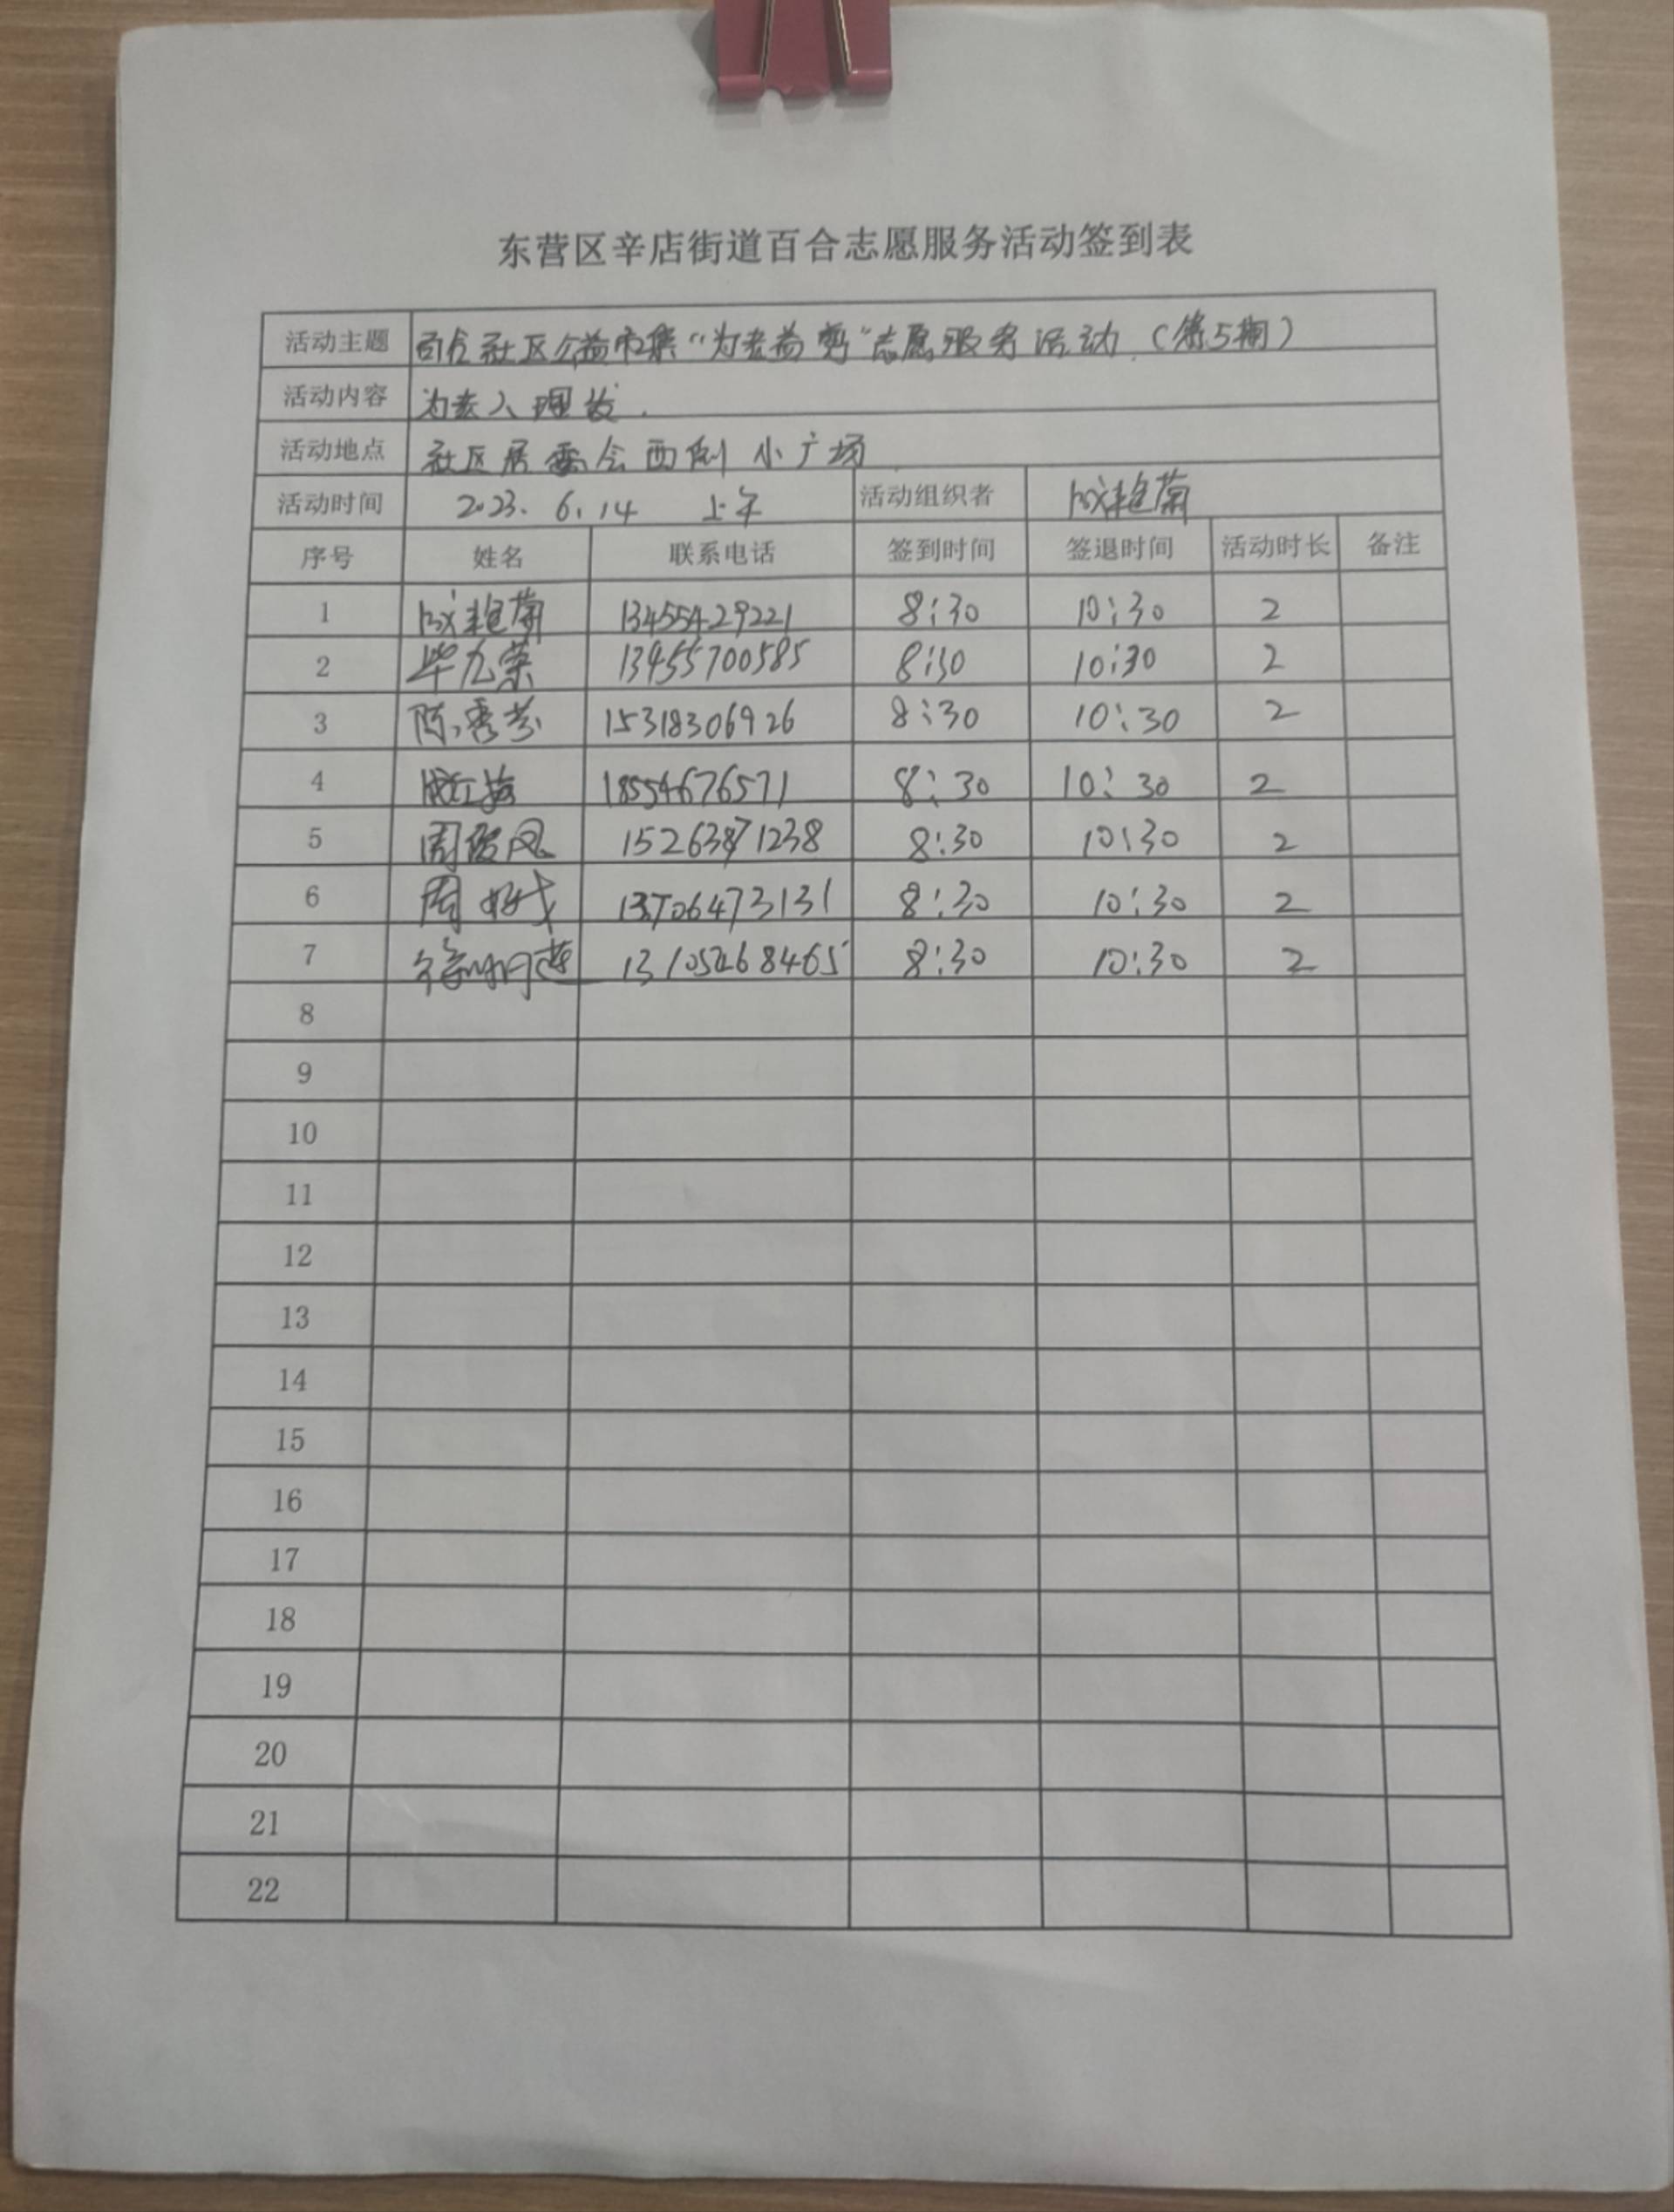 东营区辛店街道百合志愿服务活动签到表
活动主题 百合社区公益市集“为老益剪”志愿服务活动（第5期）
活动内容 为老人理发.
活动地点 社区居委会西侧小广场
活动时间 2023. 6. 14 上午 活动组织者 成艳菊
序号 姓名 联系电话 签到时间 签退时间 活动时长 备注
1 成艳菊 13455429221 8:30 10:30 2
2 毕九荣 13455700585 8:30 10:30 2
3 陈秀芳 15318306926 8:30 10:30 2
4 18554676571 8:30 10:30 2
5 周俊凤 15263871238 8:30 10:30 2
6 周 13706473131 8:30 10:30 2
7 徐 莲 8:30 10:30 2
8
9
10
11
12
13
14
15
16
17
18
19
20
21
22